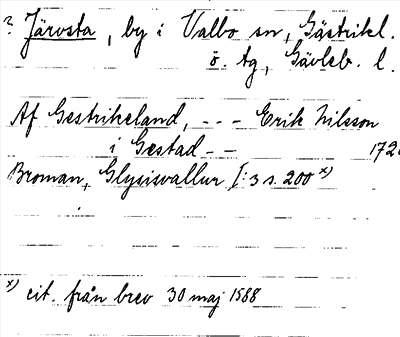 ? Järvsta, by i Valbo sn, Gästrikl.
ö. tg, Gävleb. l.
Af Gestrikeland, - - - Erik Nilsson
i Gestad - -
172
Broman, Glysisvallur I:3 s. 200 x)
x) cit. från brev 30 maj 1568